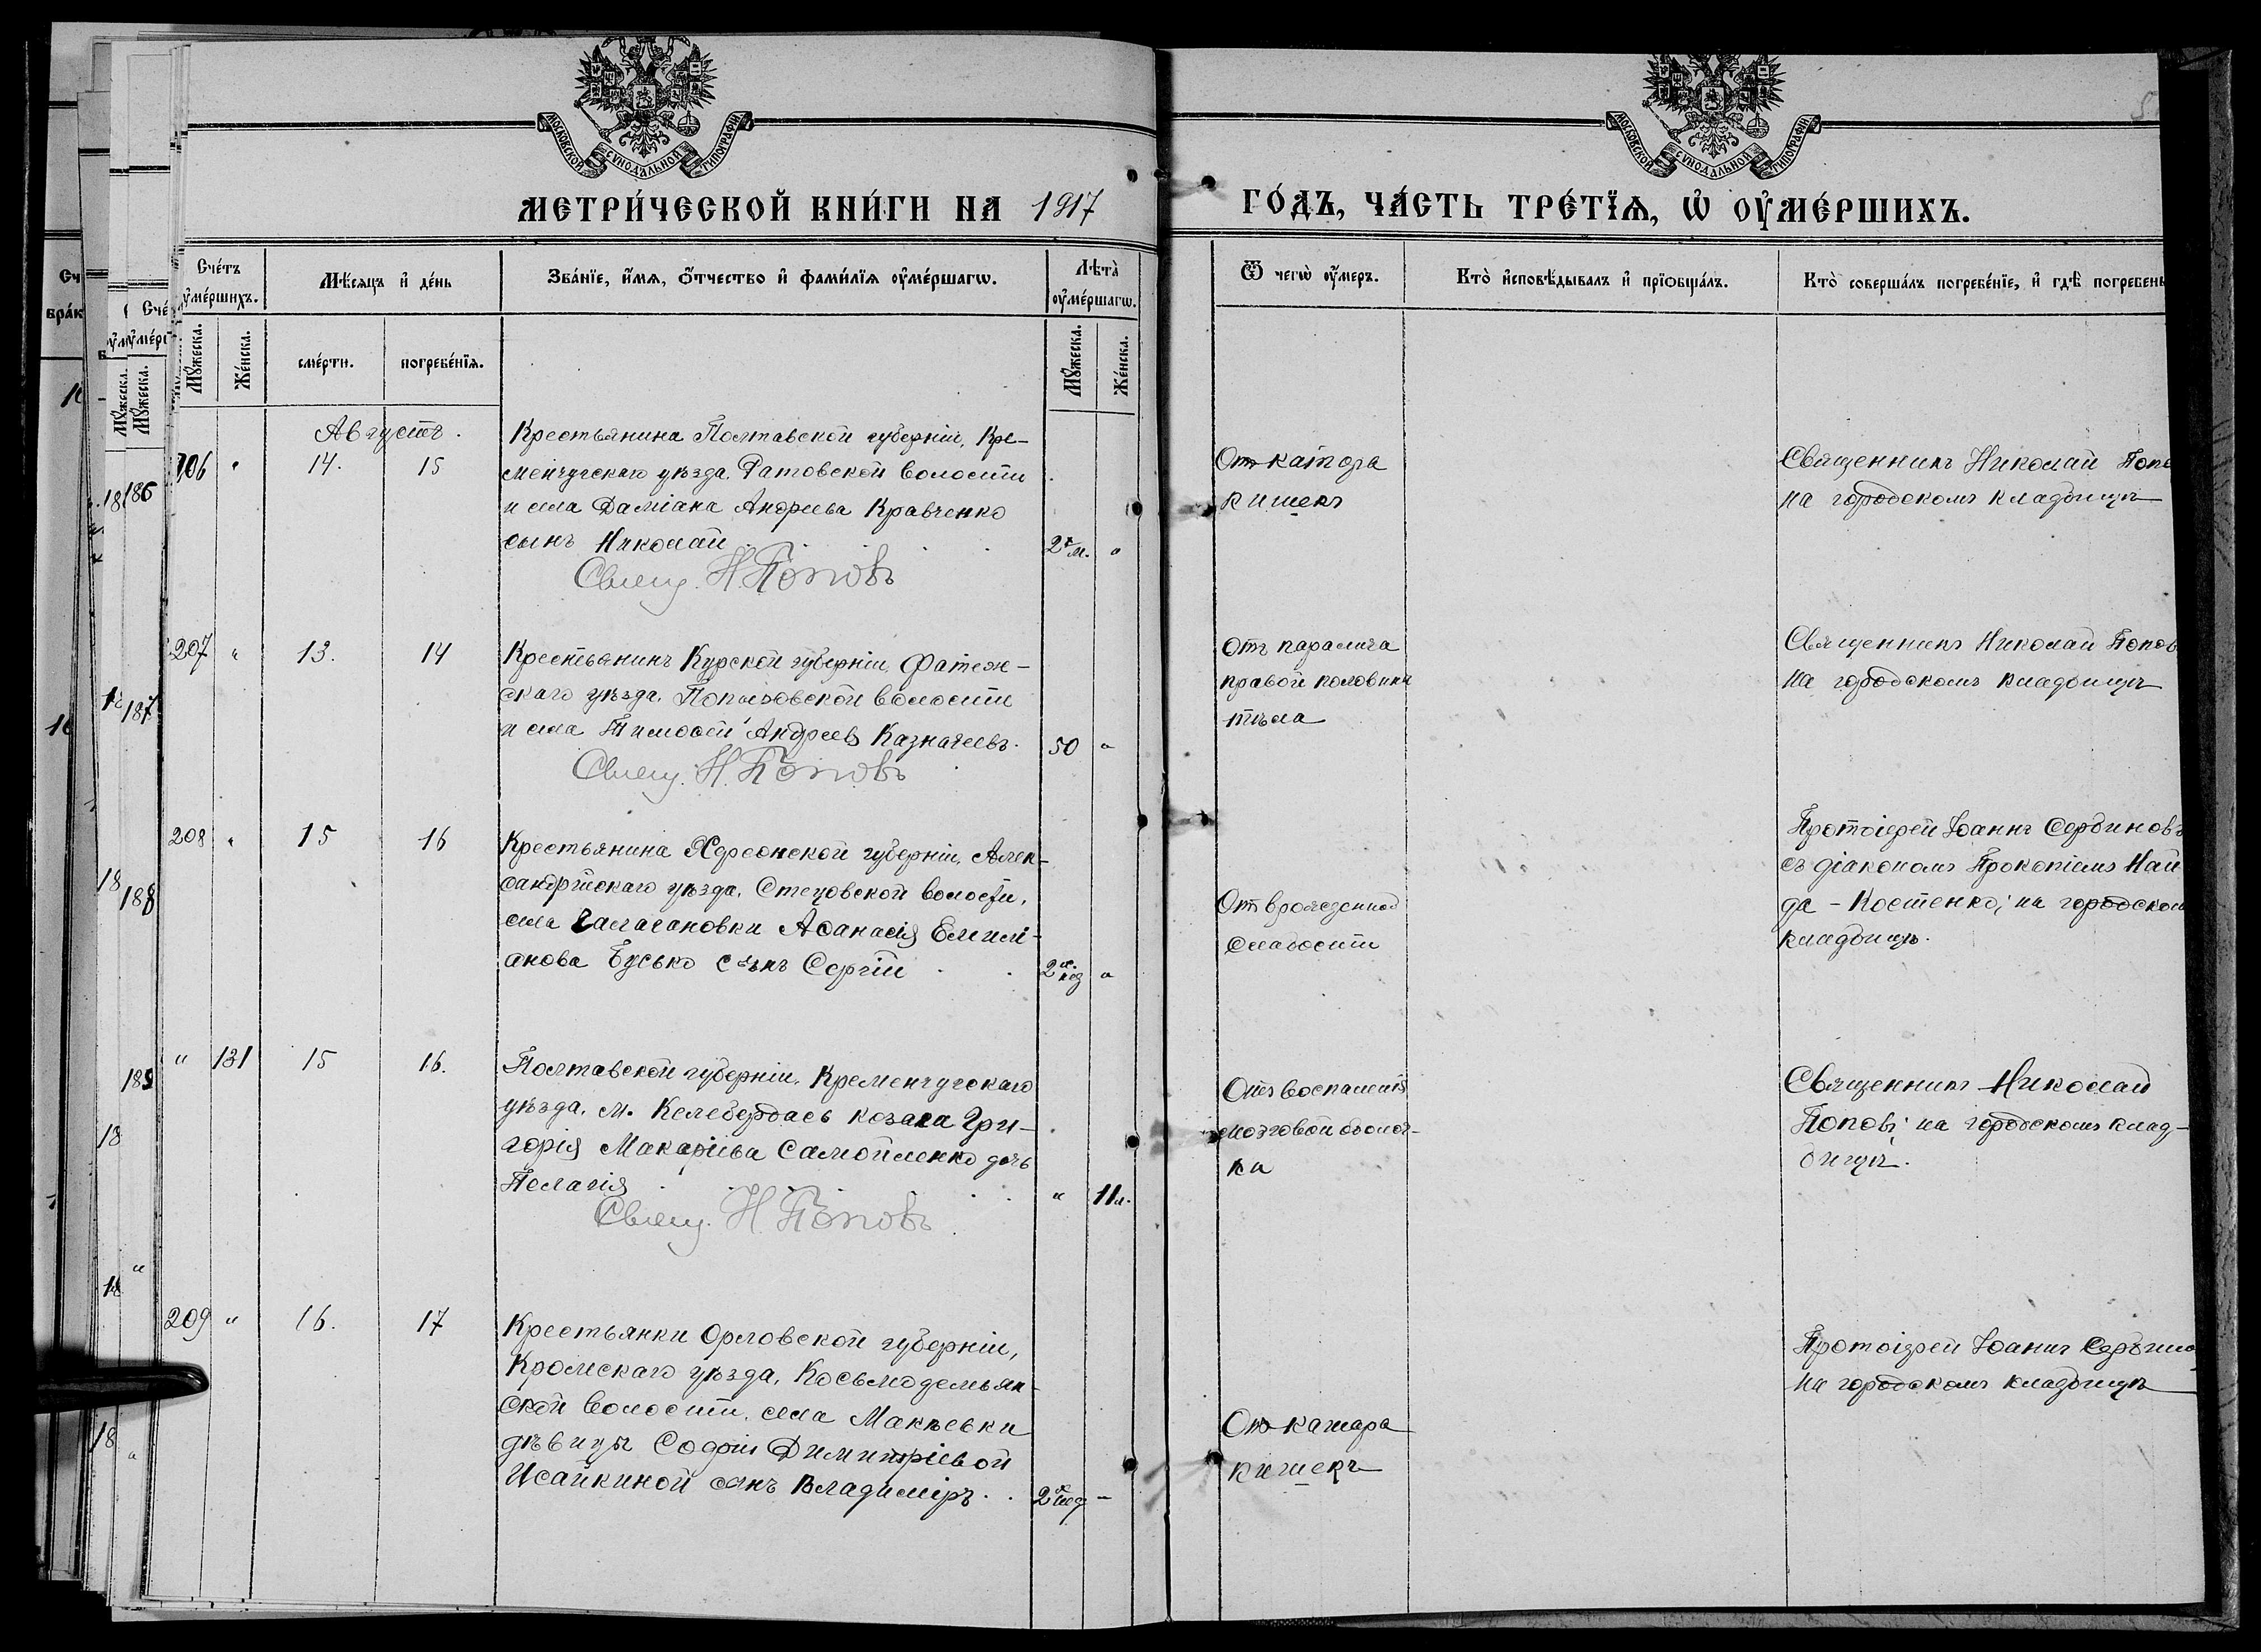 МОСКОВСКОЙ СѴНОДАЛЬНОЙ ТИПОГРАФІИ
МОСКОВСКОЙ СѴНОДАЛЬНОЙ ТИПОГРАФІИ
МЕТРИ́ЧЕСКОЙ КНИ́ГИ НА 1917
ГО́ДЪ, ЧА́СТЬ ТРЕ́ТЇѦ, Ѡ҆ ОУ҆МЕ́РШИХЪ.
Сче́тъ оу҆ме́ршихъ.
Мѣ́сяцъ и҆ де́нь
Зва́нїе, и҆́мѧ, ѻ҆́тчество и҆ фами́лїѧ оу҆ме́ршагѡ.
Лѣта̀ оу҆ме́ршагѡ.
Ѿ чегѡ̀ оу҆́меръ.
Кто̀ и҆сповѣ́дывалъ и҆ прїѡбща́лъ.
Кто̀ соверша́лъ погребе́нїе, и҆ гдѣ̀ погребены
Мꙋ́жеска.
Же́нска.
сме́рти.
погребе́нїѧ.
Мꙋ́жеска.
Же́нска.
Августъ.
206 " 14. 15
Крестьянина Полтавской губерніи, Кре-
менчугскаго уѣзда, волости
и села Даміана Андреева Кравченко
сынъ Николай
2 м. "
Свящ. Н. Поповъ
Отъ катара
кишекъ
Священникъ Николай Попо
на городскомъ кладбищѣ
207 " 13. 14
Крестьянинъ Курской губерніи, Фатеж-
скаго уѣзда, волости
и села Тимоѳей Андреевъ Казначеевъ.
50 "
Свящ. Н. Поповъ
Отъ паралича
правой половины
тѣла
Священникъ Николай Попов
на городскомъ кладбищѣ
208 " 15 16
Крестьянина Херсонской губерніи, Алек-
сандрійскаго уѣзда, Стецовской волости,
села Аѳанасія Емилі-
анова Бусько сынъ Сергій
2 нед "
Отъ врожденной
слабости
Протоіерей Іоаннъ Сербиновъ
съ діакономъ Прокопіемъ Най
да-Костенко; на городском
кладбищѣ.
" 131 15 16.
Полтавской губерніи, Кременчугскаго
уѣзда, м. Келебердаеь козака Гри-
горія Макаріева Самойленко дочь
Пелагія
" 11 м.
Свящ. Н. Поповъ
Отъ воспаленія
мозговой оболоч-
ки
Священникъ Николай
Поповъ; на городскомъ клад-
бищѣ.
209 " 16. 17
Крестьянки Орловской губерніи,
Кромскаго уѣзда, Косьмодемьян-
ской волости, села Макѣевки
дѣвицы Софіи Димитріевой
Исайкиной сынъ Владиміръ.
2 нед –
Отъ катара
кишекъ
Протоіерей Іоаннъ Сербино
на городскомъ кладбищѣ